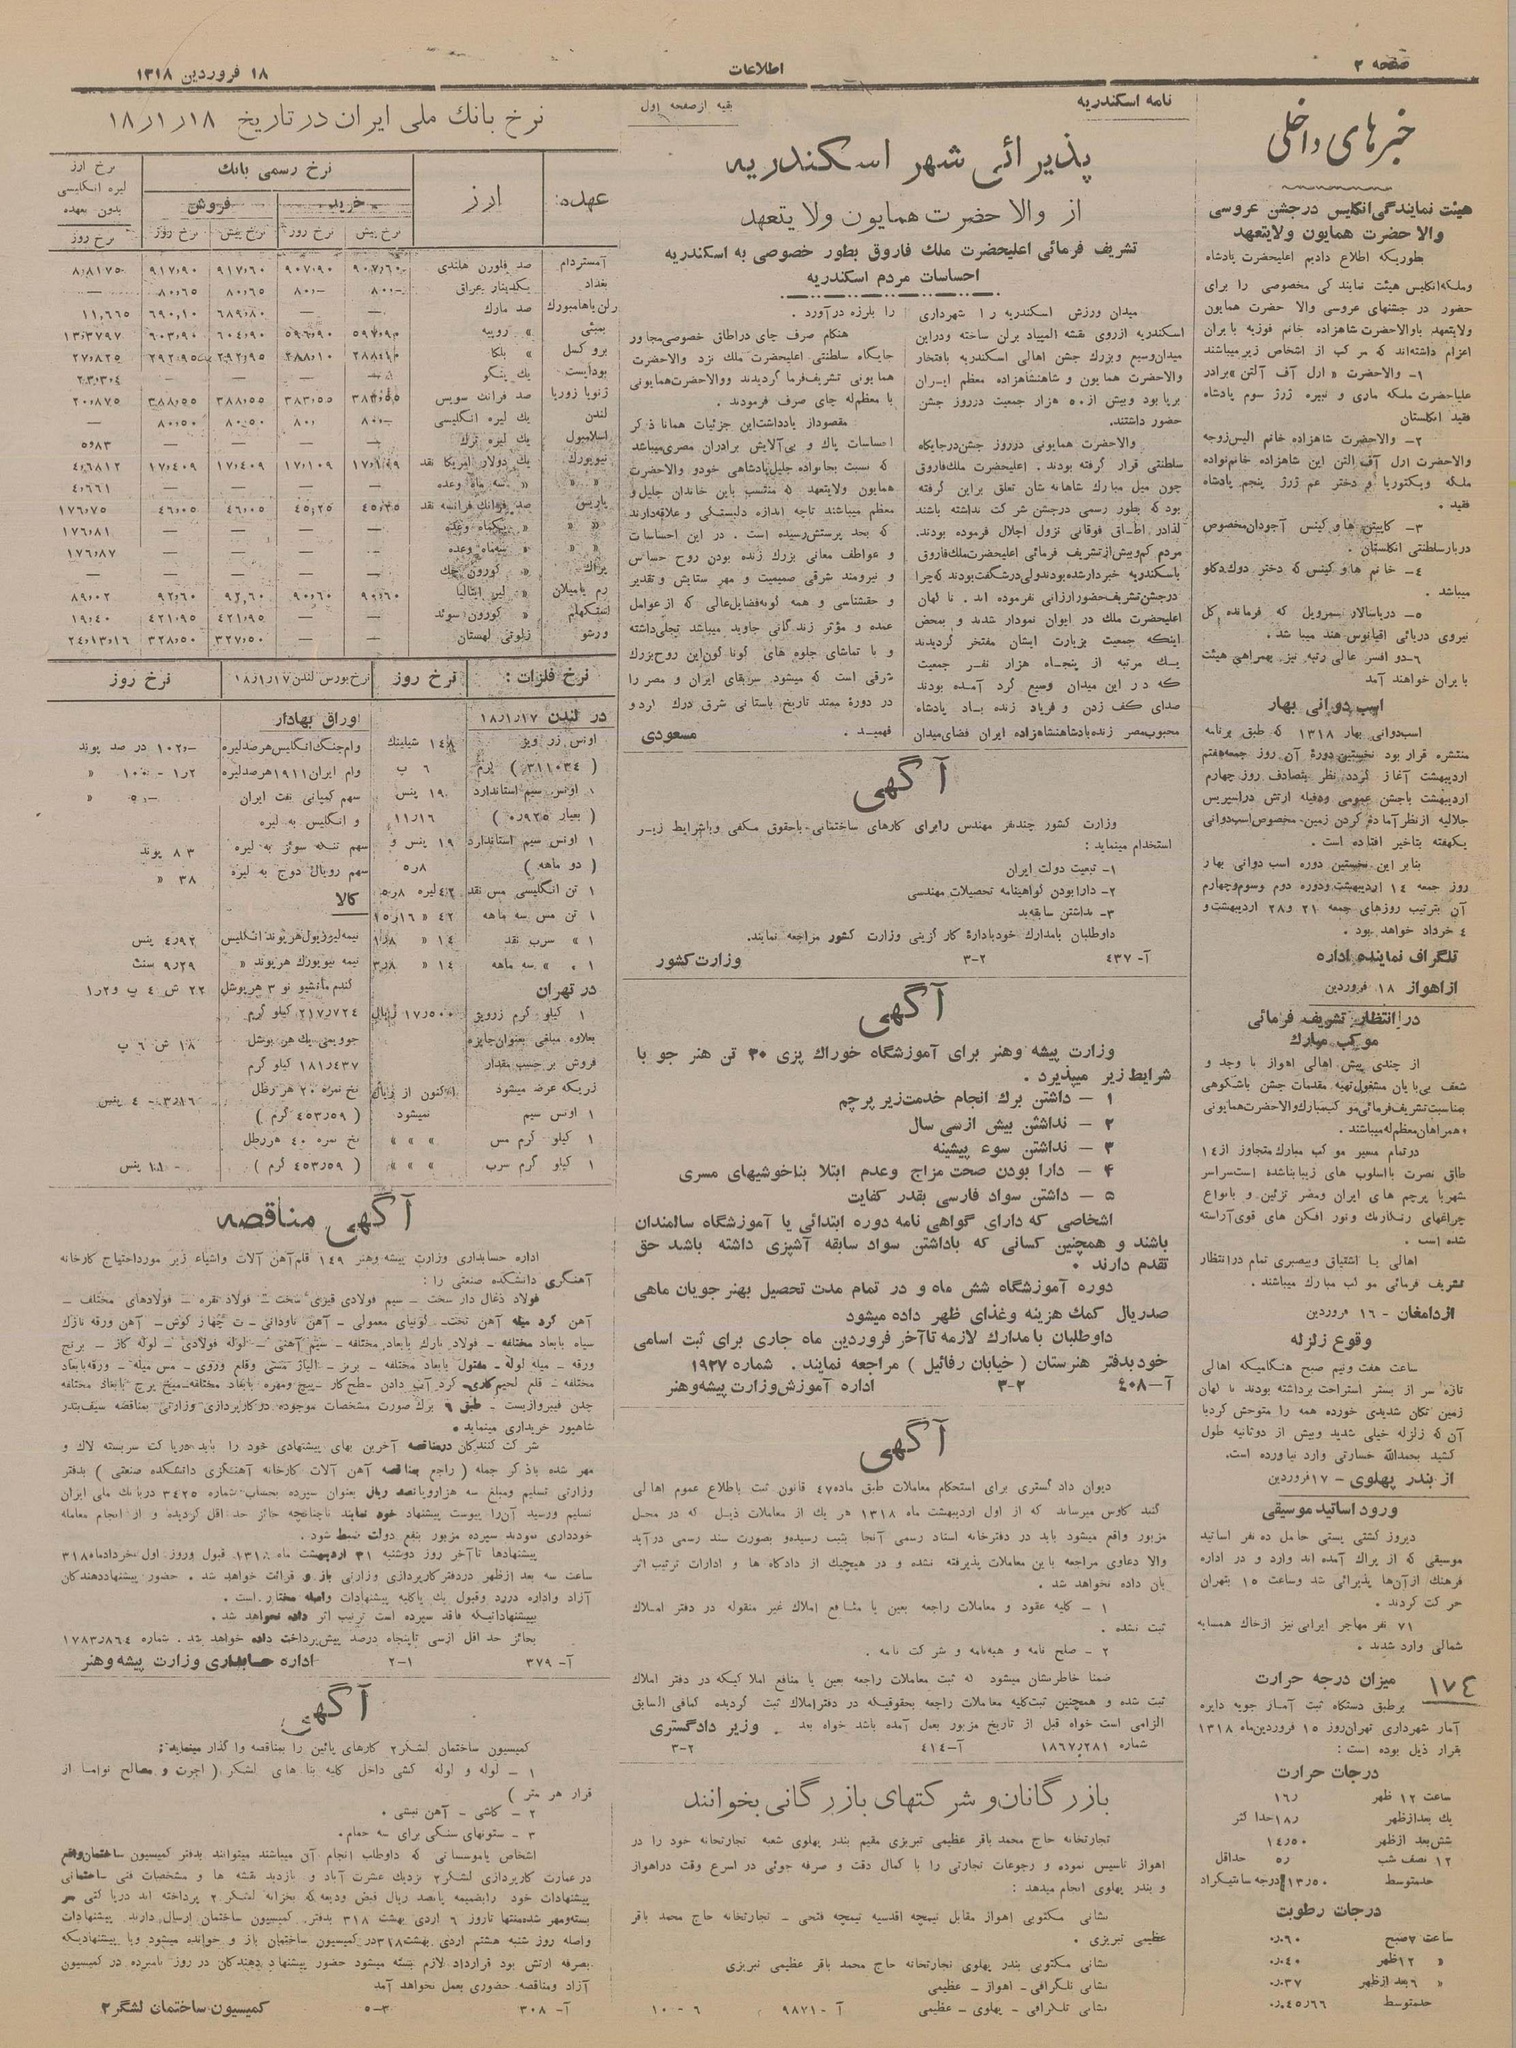 صفحه ۲
اطلاعات
۱۸ فروردین ۱۳۱۸
خبرهای داخلی
هیئت نمایندگی انگلیس در جشن عروسی
والا حضرت همایون ولایتعهد
بطوریکه اطلاع دادیم اعلیحضرت پادشاه
وملکه انگلیس هیئت نمایند گی مخصوصی را برای
حضور در جشنهای عروسی والا حضرت همایون
ولایتعهد باوالاحضرت شاهزاده خانم فوزیه بایران
اعزام داشته‌اند که مر کب از اشخاص زیر میباشند
۱- والاحضرت « ارل آف آلتن » برادر
علیاحضرت ملکه ماری و نبیره ژرژ سوم پادشاه
فقید انگلستان
۲- والاحضرت شاهزاده خانم الیس زوجه
والاحضرت ارل آف التن این شاهزاده خانم نواده
ملکه ویکتوریا و دختر عم ژرژ پنجم پادشاه
فقید .
۳- کاپیتن هاوکینس آجودان مخصوص
دربار سلطنتی انگلستان .
۴- خانم هاوکینس که دختر دوک دکلو
میباشد .
۵- دریاسالار سمرویل که فرمانده کل
نیروی دریائی اقیانوس هند میبا شد .
۶-دو افسر عالی رتبه نیز بهمراهی هیئت
بایران خواهند آمد
اسب دوانی بهار
اسب‌دوانی بهار ۱۳۱۸ که طبق برنامه
منتشره قرار بود نخستین دورهٔ آن روز جمعه هفتم
اردیبهشت آغاز گردد نظر بتصادف روز چهارم
اردیبهشت باجشن عمومی ودفیله ارتش دراسپریس
جلالیه ازنظر آماده کردن زمین مخصوص اسب‌دوانی
یکهفته بتاخیر افتاده است .
بنابر این نخستین دوره اسب دوانی بهار
روز جمعه ۱۴ اردیبهشت ودوره دوم وسوم وچهارم
آن بترتیب روزهای جمعه ۲۱ و ۲۸ اردیبهشت و
۴ خرداد خواهد بود .
تلگراف نماینده اداره
ازاهواز ۱۸ فروردین
درانتظار تشریف فرمائی
موکب مبارک
از چندی پیش اهالی اهواز با وجد و
شعف بی‌پایان مشغول تهیه مقدمات جشن باشکوهی
بمناسبت تشریف فرمائی مو کب مبارک والاحضرت همایونی
وهمراهان معظم له میباشند .
درتمام مسیر مو کب مبارک متجاوز از ۱۴
طاق نصرت بااسلوب های زیبا بناشده است سراسر
شهر با پرچم های ایران ومصر تزئین و بانواع
چراغهای رنگارنگ ونور افکن های قوی آراسته
شده است .
اهالی با اشتیاق وبیصبری تمام درانتظار
تشریف فرمائی مو کب مبارک میباشند .
ازدامغان - ۱۶ فروردین
وقوع زلزله
ساعت هفت ونیم صبح هنگامیکه اهالی
تازه سر از بستر استراحت برداشته بودند نا گهان
زمین تکان شدیدی خورده همه را متوحش کرد با
آن که زلزله خیلی شدید وبیش از دوثانیه طول
کشید بحمدالله خسارتی وارد نیاورده است.
از بندر پهلوی - ۱۷ فروردین
ورود اساتید موسیقی
دیروز کشتی پستی حامل ده نفر اساتید
موسیقی که از پراک آمده اند وارد و در اداره
فرهنگ ازآن‌ها پذیرائی شد وساعت ۱۵ بتهران
حر کت کردند .
۷۱ نفر مهاجر ایرانی نیز ازخاک همسایه
شمالی وارد شدند .
۱۷۴
میزان درجه حرارت
برطبق دستگاه ثبت آمار جویه دایره
آمار شهرداری تهران روز ۱۵ فروردین ماه ۱۳۱۸
بقرار ذیل بوده است :
درجات حرارت
ساعت ۱۲ ظهر ۱۶ر
یك بعدازظهر ۱۸ر حدا کثر
شش‌بعد ازظهر ۱۴ر۵۰
۱۲ نصف شب ۵ر حداقل
حدمتوسط ۱۳ر۵۰ درجه سانتیگراد
درجات رطوبت
ساعت ۷ صبح ۰ر۶۰
« ۱۲ ظهر ۰ر۴۰
« ۶ بعد ازظهر ۰ر۳۷
حدمتوسط ۰ر۴۵ر۶۶
نامه اسکندریه
بقیه از صفحه اول
پذیرائی شهر اسکندریه
از والا حضرت همایون ولایتعهد
تشریف فرمائی اعلیحضرت ملک فاروق بطور خصوصی به اسکندریه
احساسات مردم اسکندریه
میدان ورزش اسکندریه را شهرداری
اسکندریه ازروی نقشه المپیاد برلن ساخته ودراین
میدان وسیع وبزرک جشن اهالی اسکندریه بافتخار
والاحضرت همایون و شاهنشاهزاده معظم ایران
برپا بود وبیش از ۵۰ هزار جمعیت درروز جشن
حضور داشتند.
والاحضرت همایونی درروز جشن درجایگاه
سلطنتی قرار گرفته بودند . اعلیحضرت ملک فاروق
چون میل مبارک شاهانه شان تعلق براین گرفته
بود که بطور رسمی درجشن شر کت نداشته باشند
لذادر اطاق فوقانی نزول اجلال فرموده بودند.
مردم کم وبیش ازتشریف فرمائی اعلیحضرت ملک فاروق
باسکندریه خبردار شده بودند ولی درشگفت بودند که چرا
درجشن تشریف حضور ارزانی نفرموده اند . نا گهان
اعلیحضرت ملک در ایوان نمودار شدند و بمحض
اینکه جمعیت بزیارت ایشان مفتخر گردیدند
یک مرتبه از پنجاه هزار نفر جمعیت
که در این میدان وسیع گرد آمده بودند
صدای کف زدن و فریاد زنده باد پادشاه
محبوب مصر زنده باد شاهنشاهزاده ایران فضای میدان
را بلرزه درآورد .
هنگام صرف چای دراطاق خصوصی مجاور
جایگاه سلطنتی اعلیحضرت ملک نزد والاحضرت
همایونی تشریف فرما گردیدند ووالاحضرت همایونی
با معظم‌له چای صرف فرمودند .
مقصوداز یادداشت این جزئیات همانا ذکر
احساسات پاک و بی‌آلایش برادران مصری میباشد
که نسبت بخانواده جلیل پادشاهی خودو والاحضرت
همایون ولایتعهد که منتسب باین خاندان جلیل و
معظم میباشند تاچه اندازه دلبستگی و علاقه دارند
که بحد پرستش رسیده است . در این احساسات
و عواطف معانی بزرک زنده بودن روح حساس
و نیرومند شرقی صمیمیت و مهر ستایش و تقدیر
و حقشناسی و همه گونه فضایل عالی که از عوامل
عمده و مؤثر زند گانی جاوید میباشد تجلی داشته
و با تماشای جلوه های گونا گون این روح بزرک
شرقی است که میشود سربقای ایران و مصر را
در دورهٔ ممتد تاریخ باستانی شرق درک کرد و
فهمید .
مسعودی
آگهی
وزارت کشور چندنفر مهندس رابرای کارهای ساختمانی باحقوق مکفی وباشرایط زیر
استخدام مینماید :
۱- تبعیت دولت ایران
۲- دارا بودن گواهینامه تحصیلات مهندسی
۳- نداشتن سابقه بد
داوطلبان بامدارک خود باداره کار گزینی وزارت کشور مراجعه نمایند.
آ- ۴۳۷ ۳-۲ وزارت کشور
آگهی
وزارت پیشه وهنر برای آموزشگاه خوراک پزی ۳۰ تن هنر جو با
شرایط زیر میپذیرد .
۱ - داشتن برك انجام خدمت زیر پرچم
۲ - نداشتن بیش ازسی سال
۳ - نداشتن سوء پیشینه
۴ - دارا بودن صحت مزاج وعدم ابتلا بناخوشیهای مسری
۵ - داشتن سواد فارسی بقدر کفایت
اشخاصی که دارای گواهی نامه دوره ابتدائی یا آموزشگاه سالمندان
باشند و همچنین کسانی که باداشتن سواد سابقه آشپزی داشته باشند حق
تقدم دارند .
دوره آموزشگاه شش ماه و در تمام مدت تحصیل بهنر جویان ماهی
صدریال کمك هزینه وغذای ظهر داده میشود
داوطلبان بامدارك لازمه تاآخر فروردین ماه جاری برای ثبت اسامی
خود بدفتر هنرستان ( خیابان رفائیل ) مراجعه نمایند . شماره ۱۹۲۷
آ-۴۰۸ ۳-۲ اداره آموزش وزارت پیشه وهنر
آگهی
دیوان داد گستری برای استحکام معاملات طبق ماده ۴۷ قانون ثبت باطلاع عموم اهالی
گنبد کاوس میرساند که از اول اردیبهشت ماه ۱۳۱۸ هر یک از معاملات ذیل که در محل
مزبور واقع میشود باید در دفترخانه اسناد رسمی آنجا بثبت رسیده وبصورت سند رسمی درآید
والا دعاوی مراجعه باین معاملات پذیرفته نشده و در هیچیک از دادگاه ها و ادارات ترتیب اثر
بان داده نخواهد شد .
۱ - کلیه عقود و معاملات راجعه بعین یا منافع املاک غیر منقوله در دفتر املاک
ثبت نشده .
۲ - صلح نامه و هبه‌نامه و شرکت نامه .
ضمنا خاطرنشان میشود که ثبت معاملات راجعه بعین یا منافع املا کیکه در دفتر املاک
ثبت شده و همچنین ثبت کلیه معاملات راجعه بحقوقیکه در دفتر املاک ثبت گردیده کمافی السابق
الزامی است خواه قبل از تاریخ مزبور بعمل آمده باشد خواه بعد . وزیر دادگستری
شماره ۱۸۶۷٫۲۸۱ آ-۴۱۴ ۳-۲
بازرگانان و شرکتهای بازرگانی بخوانند
تجارتخانه حاج محمد باقر عظیمی تبریزی مقیم بندر پهلوی شعبه تجارتخانه خود را در
اهواز تاسیس نموده و رجوعات تجارتی را با کمال دقت و صرفه جوئی در اسرع وقت دراهواز
و بندر پهلوی انجام میدهد :
نشانی مکتوبی اهواز مقابل تیمچه اقدسیه تیمچه فتحی - تجارتخانه حاج محمد باقر
عظیمی تبریزی .
نشانی مکتوبی بندر پهلوی تجارتخانه حاج محمد باقر عظیمی تبریزی
نشانی تلگرافی - اهواز - عظیمی
نشانی تلگرافی - پهلوی - عظیمی آ - ۹۸۷۱ ۶ - ۱۰
نرخ بانک ملی ایران در تاریخ ۱۸ر۱ر۱۸
عهده: ارز نرخ رسمی بانک نرخ ارز
لیره انگلیسی
خرید فروش بدون تعهد
نرخ پیش نرخ روز نرخ پیش نرخ روز نرخ روز
آمستردام صد فلورن هلندی ۹۰۷٫۶۰ ۹۰۷٫۹۰ ۹۱۷٫۶۰ ۹۱۷٫۹۰ ۸٫۸۱۷۵
بغداد یکدینار عراق ۸۰٫- ۸۰٫- ۸۰٫۶۵ ۸۰٫۶۵ —
صد مارک — — ۶۸۹٫۸۰ ۶۹۰٫۱۰ ۱۱٫۶۶۵
بمبئی « روپیه ۵۹۶٫۹۰ ۶۰۴٫۹۰ ۶۰۳٫۹۰
برو کسل « بلگا ۲۸۸٫۱۰ ۲۹۲٫۹۵ ۲۹۲٫۹۵ ۲۷٫۸۲۵
بوداپست یك پنگو — — — —
ژنویا زوریا صد فرانک سویس ۳۸۳٫۵۵ ۳۸۸٫۵۵ ۳۸۸٫۵۵ ۲۰٫۸۷۵
لندن یك لیره انگلیسی ۸۰٫ ۸۰٫ ۸۰٫۵۰ ۸۰٫۵۰ —
اسلامبول یك لیره ترک — — — — ۵٫۸۳
نیویورک یك دولار امریکا نقد ۱۷٫۱۰۹ ۱۷٫۴۰۹ ۱۷٫۴۰۹ ۴٫۶۸۱۲
« « « سه ماه وعده — — — — ۴٫۶۶۱
پاریس صد فرانک فرانسه نقد ۴۵٫۲۵ ۴۶٫۰۵ ۴۶٫۰۵ ۱۷۶٫۷۵
« « « یکماه وعده — — — — ۱۷۶٫۸۱
« « « سه‌ماه وعده — — — — ۱۷۶٫۸۷
پراک « کورون چک — — — — —
رم یامیلان « لیر ایتالیا ۹۰٫۶۰ ۹۰٫۶۰ ۹۲٫۶۰ ۹۲٫۶۰ ۸۹٫۰۲
استکهلم « کورون سوئد — — ۴۲۱٫۹۵ ۴۲۱٫۹۵ ۱۹٫۴۰
ورشو زلوتی لهستان — — ۳۲۷٫۵۰ ۳۲۸٫۵۰
نرخ فلزات : نرخ روز نرخ بورس لندن ۱۷ر۱ر۱۸ نرخ روز
در لندن ۱۷ر۱ر۱۸
اونس زر ویژ ۱۴۸ شیلینک
( ۳۱۱۰۳۴ ) گرم ۶ پ
۱ اونس سیم استاندارد ۱۹ پنس
( بعیار ۹۲۵ر۰ ) ۱۱ر۱۶
۱ اونس سیم استاندارد ۱۹ پنس و
( دو ماهه ) ۵ر۸
۱ تن انگلیسی مس نقد ۴۲ لیره ۵ر۸
۱ تن مس سه ماهه ۴۲ « ۱۵ر۱۶
۱ « سرب نقد ۱۴ « ۱ر۸
۱ « « سه ماهه ۱۴ « ۳ر۸
در تهران
۱ کیلو گرم زرویژ ۱۷ر۵۰۰ ریال
بعلاوه مبلغی بعنوان جایزه
فروش برحسب مقدار
زریکه عرضه میشود
۱ اونس سیم
۱ کیلو گرم مس « « «
۱ کیلو گرم سرب « « «
اوراق بهادار
وام جنگ انگلیس هرصدلیره ۱۰۲٫- در صد پوند
وام ایران ۱۹۱۱ هرصدلیره
سهم کمپانی نفت ایران
و انگلیس به لیره
سهم تنگه سوئز به لیره ۸۳ پوند
سهم رویال دوچ به لیره ۳۸ «
کالا
پنبه لیورپول هر پوند انگلیس ۴ر۹۲ پنس
پنبه نیویورک هرپوند « ۹ر۲۹ سنت
گندم مانیتبو نو ۳ هربوشل
۲۱۷ر۷۲۴ کیلو گرم
جوویعنی یك هر بوشل ۱۸ ش ۶ پ
۱۸۱ر۴۳۷ کیلو گرم
نخ نمره ۲۰ هر رطل
( ۴۵۳ر۵۹ گرم )
نخ نمره ۴۰ هررطل
( ۴۵۳ر۵۹ گرم )
آگهی مناقصه
اداره حسابداری وزارت پیشه وهنر ۱۴۹ قلم آهن آلات واشیاء زیر مورداحتیاج کارخانه
آهنگری دانشکده صنعتی را :
فولاد ذغال دار سخت - سیم فولادی فنری سخت - فولاد نقره - فولادهای مختلف -
آهن گرد میله آهن تخت- لونیای معمولی - آهن ناودانی - ت چهار گوش - آهن ورقه نازک
سیاه بابعاد مختلفه - فولاد نازک بابعاد مختلفه - سیم آهنی - لوله فولادی - لوله گاز - برنج
ورقه - میله لوله - مفتول بابعاد مختلفه - برنز - الیاژ مسی وقلع وروی - مس میله - ورقه بابعاد
مختلفه - قلم لحیم کاری - گرد آب دادن - طح کار - پیچ ومهره بابعاد مختلفه - میخ پرچ بابعاد مختلفه
چدن فیبروازیست - طبق ۹ برك صورت مشخصات موجوده درکارپردازی وزارتی بمناقصه سیف‌بندر
شاهپور خریداری مینماید .
شرکت کنندگان درمناقصه آخرین بهای پیشنهادی خود را باید درپاکت سربسته لاک و
مهر شده باذکر جمله ( راجع بمناقصه آهن آلات کارخانه آهنگری دانشکده صنعتی ) بدفتر
وزارتی تسلیم ومبلغ سه هزاروپانصد ریال بعنوان سپرده بحساب شماره ۳۴۲۵ دربانک ملی ایران
تسلیم ورسید آن‌را پیوست پیشنهاد خود نمایند چنانچه حائز حداقل گردیده و از انجام معامله
خودداری نمودند سپرده مزبور بنفع دولت ضبط شود .
پیشنهادها تاآخر روز دوشنبه ۳۱ اردیبهشت ماه ۱۳۱۸ قبول وروز اول خردادماه ۳۱۸
ساعت سه بعد ازظهر دردفتر کارپردازی وزارتی باز و قرائت خواهد شد . حضور پیشنهاددهندگان
آزاد واداره دررد وقبول یك یاکلیه پیشنهادات واصله مختار است .
بپیشنهاداتیکه فاقد سپرده است ترتیب اثر داده نخواهد شد .
بحائز حد اقل ازسی تاپنجاه درصد پیش‌پرداخت داده خواهد شد . شماره ۱۷۸۳٫۸۶۴
آ- ۳۷۹ ۲-۱ اداره حسابداری وزارت پیشه وهنر
آگهی
کمیسیون ساختمان لشکر ۲ کارهای پائین را بمناقصه واگذار مینماید:
۱ - لوله و لوله کشی داخل کلیه بنا های لشکر ( اجرت و مصالح تواما از
قرار هر متر )
۲ - کاشی - آهن نبشی .
۳ - ستونهای سنگی برای سه حمام .
اشخاص یاموسساتی که داوطلب انجام آن میباشند میتوانند بدفتر کمیسیون ساختمان واقع
در عمارت کارپردازی لشکر ۲ نزدیک عشرت آباد و بازدید نقشه ها و مشخصات فنی ساختمانی
پیشنهادات خود رابضمیمه پانصد ریال قبض ودیعه که بخزانه لشکر ۲ پرداخته اند درپا کتی سر
بسته ومهر شده منتها تاروز ۶ اردی بهشت ۳۱۸ بدفتر کمیسیون ساختمان ارسال دارند پیشنهادات
واصله روز شنبه هشتم اردی بهشت ۳۱۸ در کمیسیون ساختمان باز و خوانده میشود وبا پیشنهادیکه
بصرفه ارتش بود قرارداد لازم بسته میشود حضور پیشنهاد دهندگان در روز نامبرده در کمیسیون
آزاد ومناقصه حضوری بعمل نخواهد آمد
آ- ۳۰۸ ۵-۳ کمیسیون ساختمان لشگر ۲